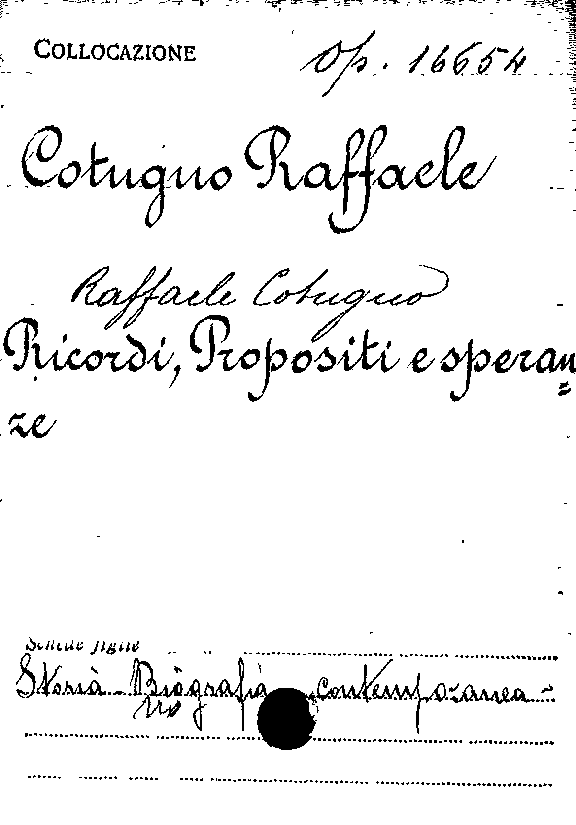 COLLOCAZIONE
Op. 16654
Cotugno Raffaele
Raffaele Cotugno
Ricordi, Propositi e speran=
ze
Schede figlie
Storia - Biografia contemporanea -
no